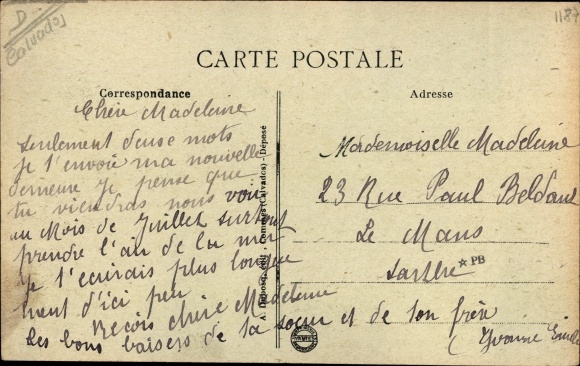 D
Calvados
1187
CARTE POSTALE
Correspondance
Adresse
Chère Madeleine
Seulement deuse mots
Je t'envoie ma nouvelle
demeure Je pense que
tu viendras nous voir
au Mois de Juillet surtout
prendre l'air de la mer
Je t'ecrirais plus longue
ment d'ici peu
Recois chère Madeleine
Les bons baisers de ta soeur et de ton frère
(Yvonne
édit. - Commes (Calvados) - Déposé
Mademoiselle Madeleine
23 Rue Paul
Le Mans
Sarthe
PB